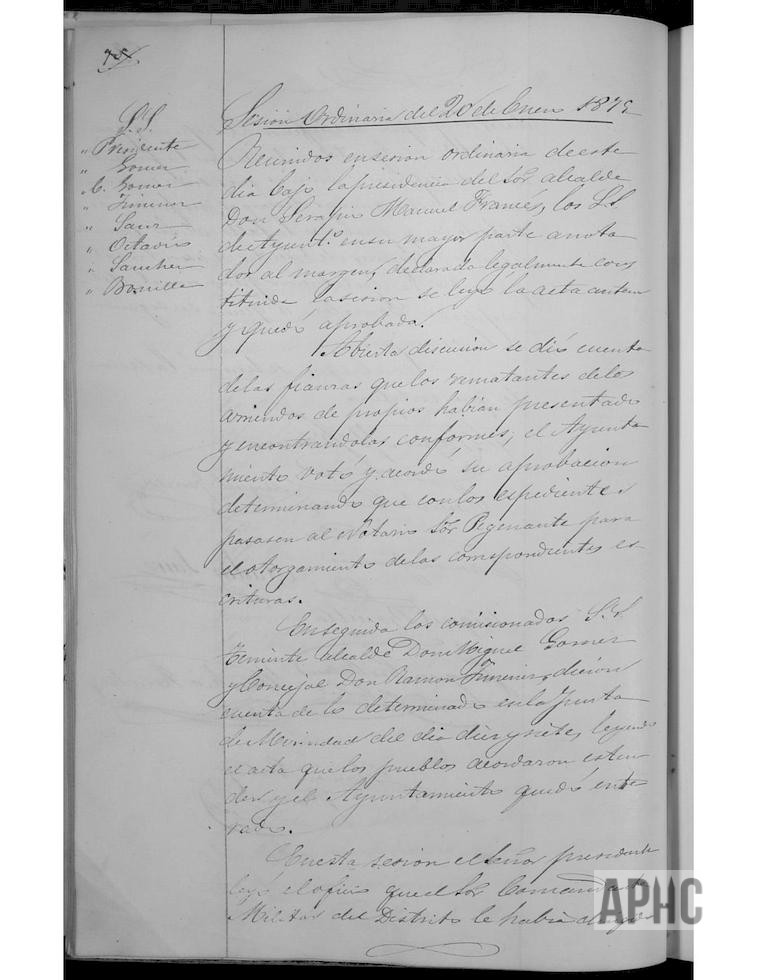 S.S.
" Presidente
" Gomez
" C. Gomez
" Jimenez
" Sanz
" Octavio
" Sanchez
" Bonilla
Sesion Ordinaria del 20 de Enero 1879
Reunidos en sesion ordinaria de este
dia bajo la presidencia del Sor. alcalde
Don Serafin Manuel Frances, los S.S.
de Ayunt.o en su mayor parte anota
dos al margen, declarada legalmente cons
tituida la sesion se leyó la acta anterior
y quedó aprobada.
Abierta discusion se dió cuenta
de las fianzas que los rematantes de los
arriendos de propios habian presentado
y encontrandolas conformes, el Ayunta
miento votó y acordó su aprobacion
determinando que con los espedientes
pasasen al Notario Sor. Pegenaute para
el otorgamiento de las correspondientes es-
crituras.
En seguida los comisionados S.S.
Teniente alcalde Don Miguel Gomez
y Concejal Don Ramon Jimenez, dieron
cuenta de lo determinado en la Junta
de Merindad del dia diez y siete, leyendo
el acta que los pueblos acordaron esten
der y el Ayuntamiento quedó ente
rado.
En esta sesion el Señor presidente
leyó el oficio que el Sor. Comandante
Militar del Distrito le habia dirigido
APHC